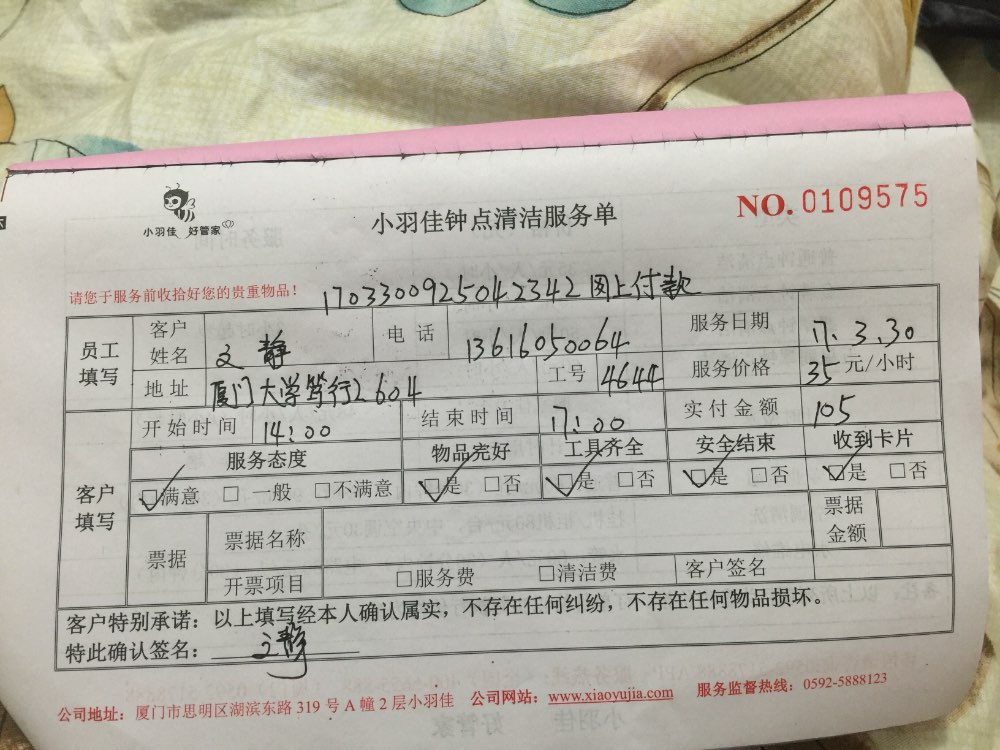 小羽佳 好管家
小羽佳钟点清洁服务单
NO. 0109575
请您于服务前收拾好您的贵重物品！
1703300925042342 网上付款
员工填写 客户姓名 文静 电话 13616050064 服务日期 17.3.30
地址 厦门大学笃行2604 工号 4644 服务价格 35 元/小时
客户填写 开始时间 14:00 结束时间 17:00 实付金额 105
服务态度 物品完好 工具齐全 安全结束 收到卡片
☑满意 □一般 □不满意 ☑是 □否 ☑是 □否 ☑是 □否 ☑是 □否
票据 票据名称 票据金额
开票项目 □服务费 □清洁费 客户签名
客户特别承诺：以上填写经本人确认属实，不存在任何纠纷，不存在任何物品损坏。
特此确认签名：文静
公司地址：厦门市思明区湖滨东路 319 号 A 幢 2 层小羽佳 公司网站：www.xiaoyujia.com 服务监督热线：0592-5888123